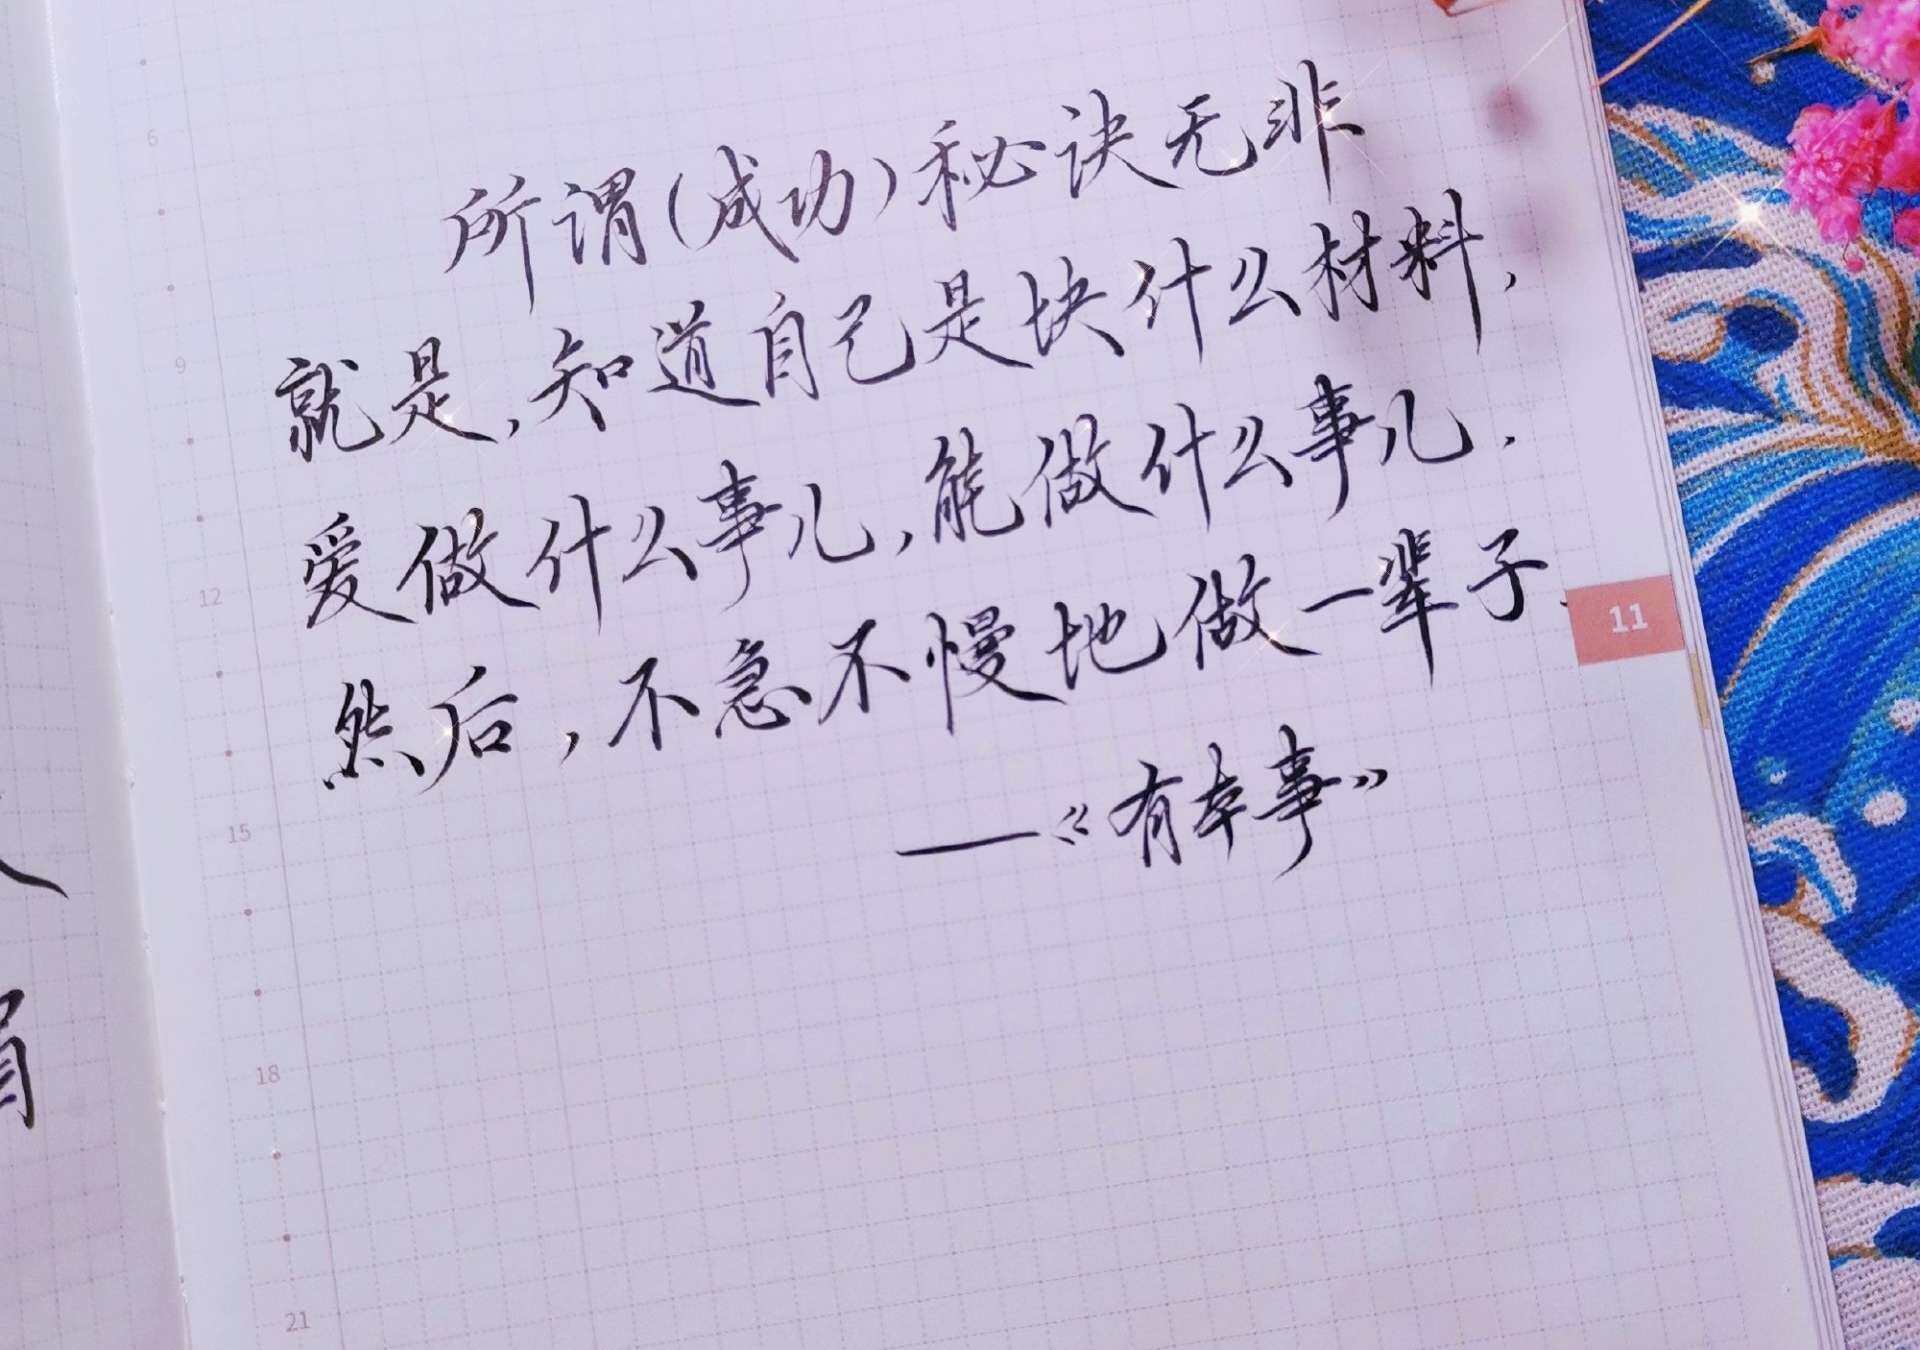 所谓(成功)秘诀无非
就是,知道自己是块什么材料,
爱做什么事儿,能做什么事儿.
然后,不急不慢地做一辈子.
——《有本事》
6
9
12
15
18
21
11